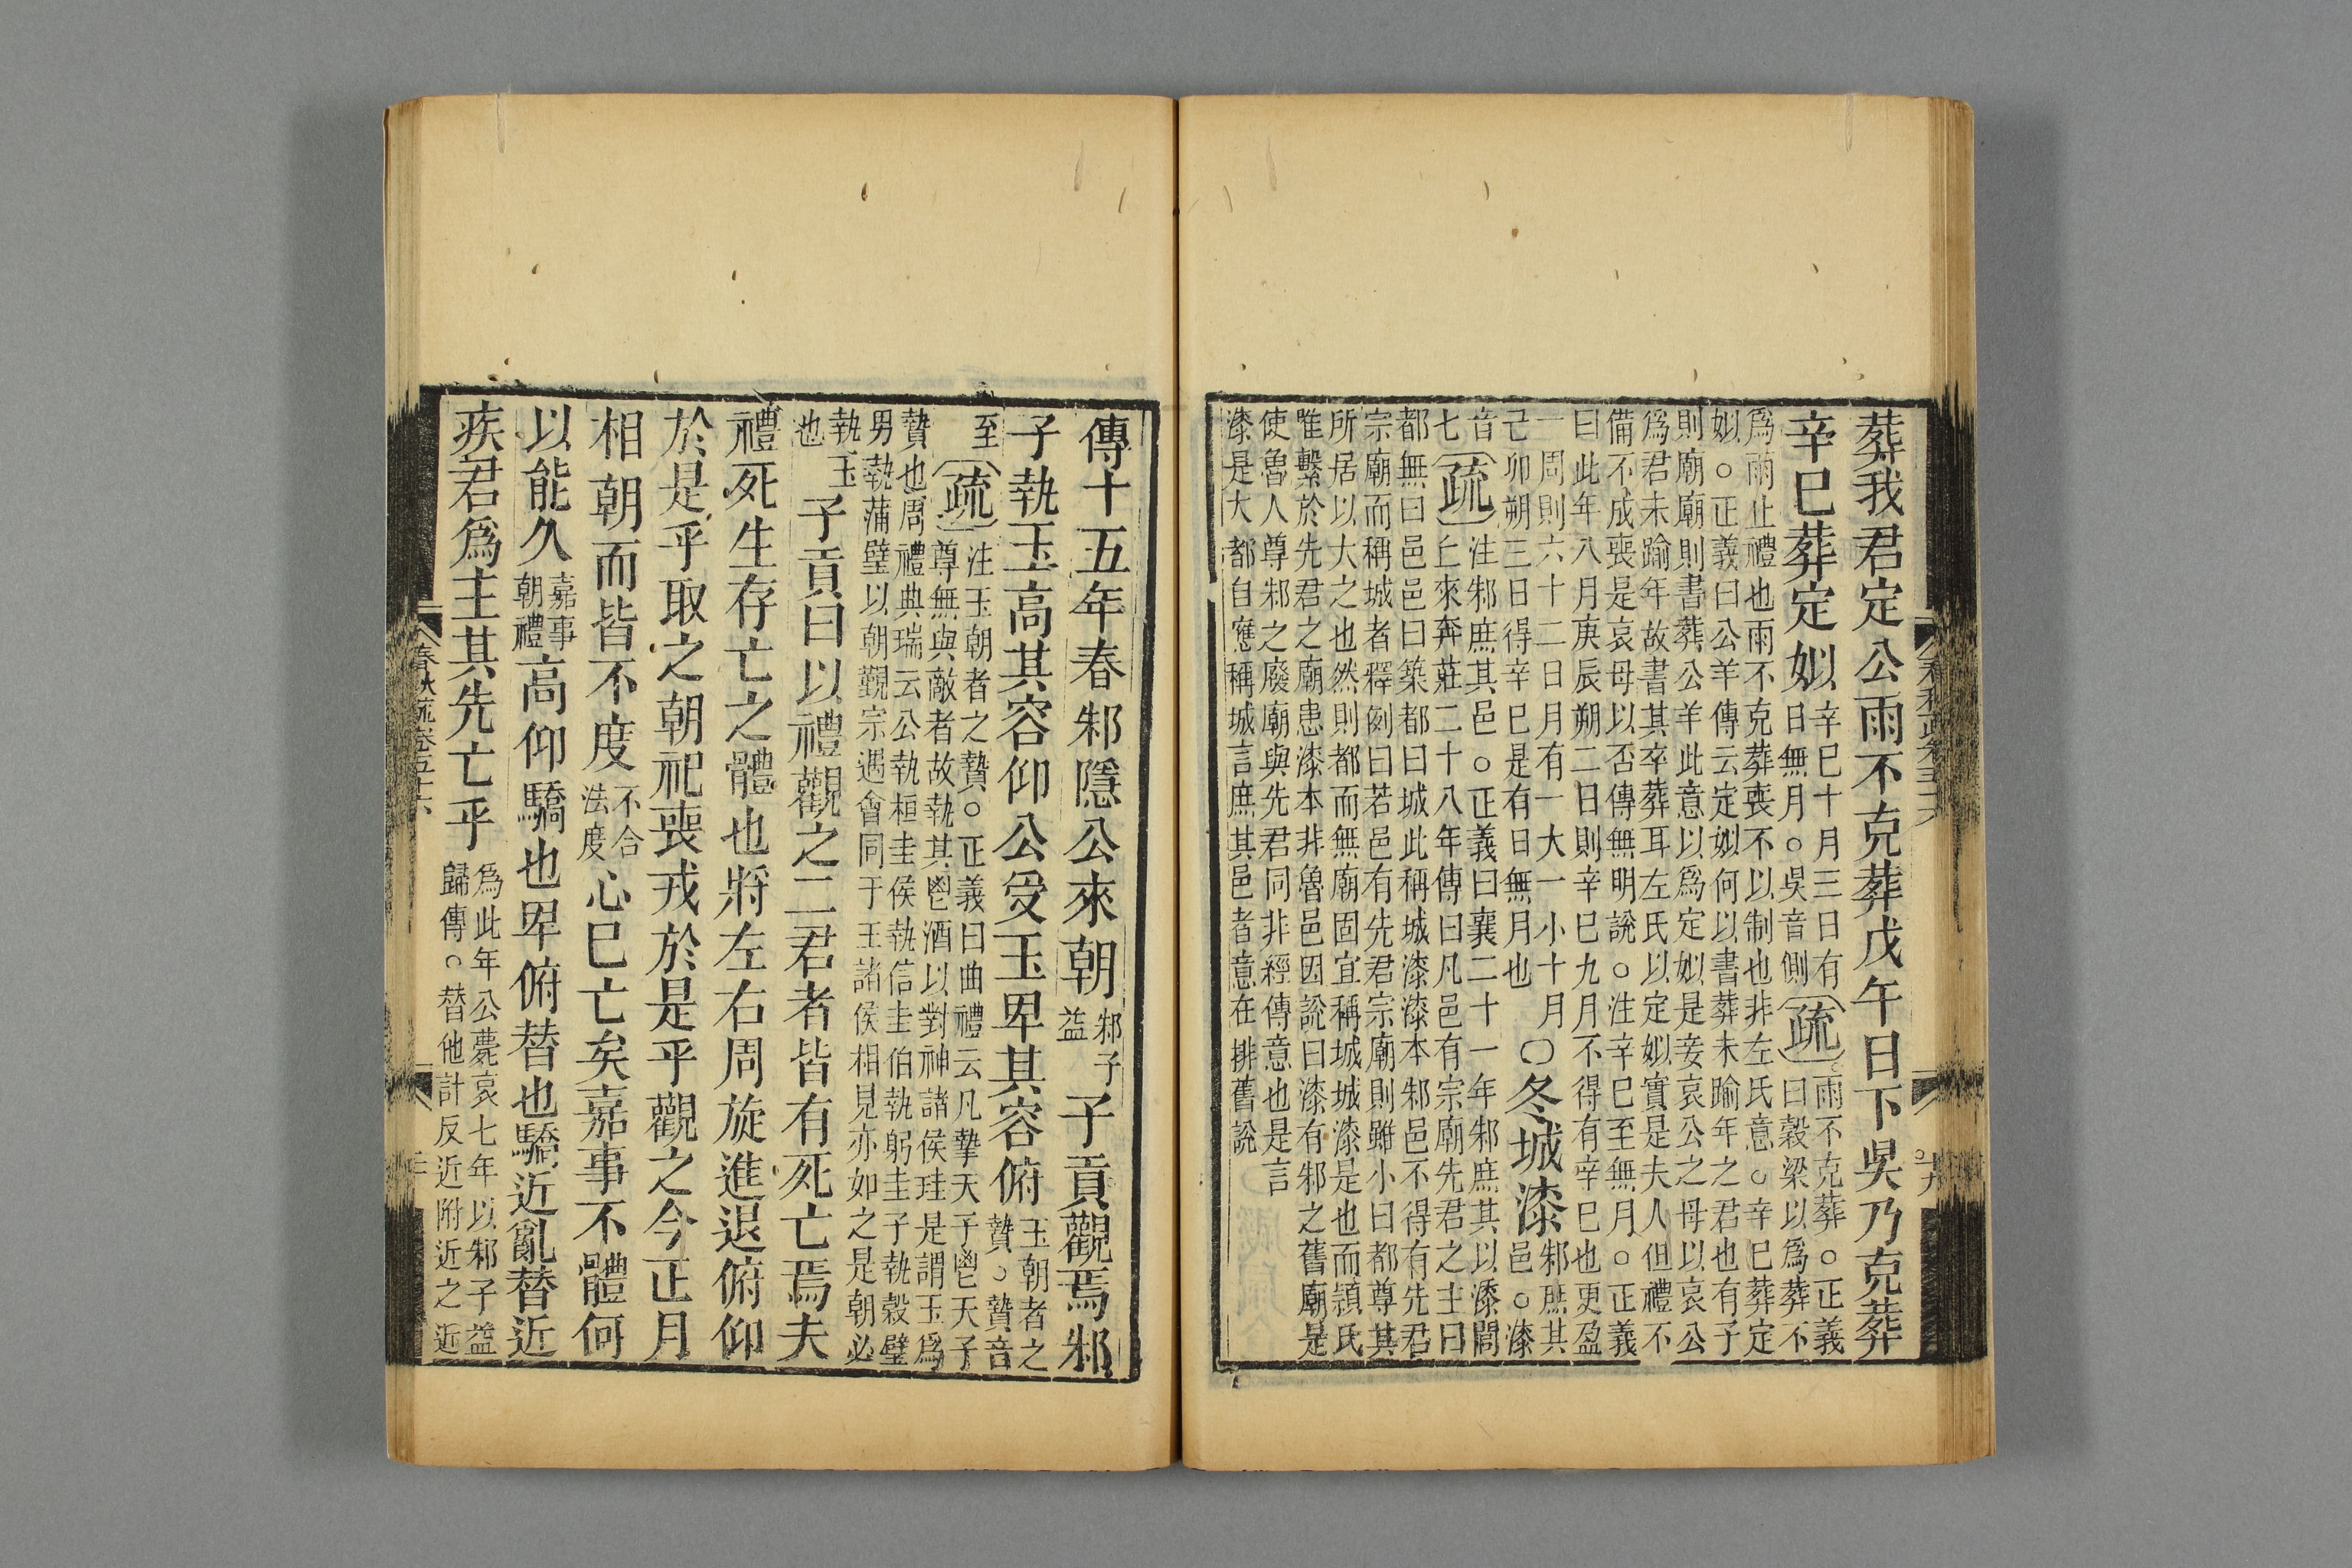 葬我君定公雨不克葬戊午日下昃乃克葬
辛巳葬定姒
辛巳十月三日有
日無月○昃音側
疏
雨不克葬○正義
曰穀梁以爲葬不
爲雨止禮也雨不克葬喪不以制也非左氏意○辛巳葬定
姒○正義曰公羊傳云定姒何以書葬未踰年之君也有子
則廟廟則書葬公羊此意以爲定姒是妾哀公之母以哀公
爲君未踰年故書其卒葬耳左氏以定姒實是夫人但禮不
備不成喪是哀母以否傳無明說○注辛巳至無月○正義
曰此年八月庚辰朔二日則辛巳九月不得有辛巳也更盈
一周則六十二日月有一大一小十月
己卯朔三日得辛巳是有日無月也
○冬城漆
邾庶其
邑○漆
音七
疏
注邾庶其邑○正義曰襄二十一年邾庶其以漆閭
丘來奔莊二十八年傳曰凡邑有宗廟先君之主曰
都無曰邑邑曰築都曰城此稱城漆漆本邾邑不得有先君
宗廟而稱城者釋例曰若邑有先君宗廟則雖小曰都尊其
所居以大之也然則都而無廟固宜稱城城漆是也而潁氏
唯繫於先君之廟患漆本非魯邑因說曰漆有邾之舊廟是
使魯人尊邾之廢廟與先君同非經傳意也是言
漆是大都自應稱城言庶其邑者意在排舊說
傳十五年春邾隱公來朝
邾子
益
子貢觀焉邾
子執玉高其容仰公受玉卑其容俯
玉朝者之
贄○贄音
至
疏
注玉朝者之贄○正義曰曲禮云凡摯天子鬯天子
尊無與敵者故執其鬯酒以對神諸侯珪是謂玉爲
贄也周禮典瑞云公執桓圭侯執信圭伯執躬圭子執穀璧
男執蒲璧以朝覲宗遇會同于王諸侯相見亦如之是朝必
執玉
也
子貢曰以禮觀之二君者皆有死亡焉夫
禮死生存亡之體也將左右周旋進退俯仰
於是乎取之朝祀喪戎於是乎觀之今正月
相朝而皆不度
不合
法度
心巳亡矣嘉事不體何
以能久
嘉事
朝禮
高仰驕也卑俯替也驕近亂替近
疾君爲主其先亡乎
爲此年公薨哀七年以邾子益
歸傳○替他計反近附近之近
春秋疏卷五十六